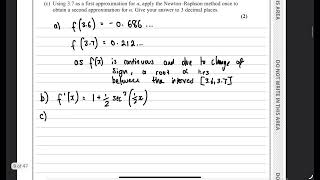 (c) Using 3.7 as a first approximation for α, apply the Newton-Raphson method once to
obtain a second approximation for α. Give your answer to 3 decimal places.
(2)
a) f(3.6) = -0.686...
f(3.7) = 0.212...
as f(x) is continuous and due to change of
sign, a root α lies
between the interval [3.6, 3.7]
b) f'(x) = 1 + ½ sec² (½x)
c)
DO NOT WRITE IN THIS AREA
6 of 47